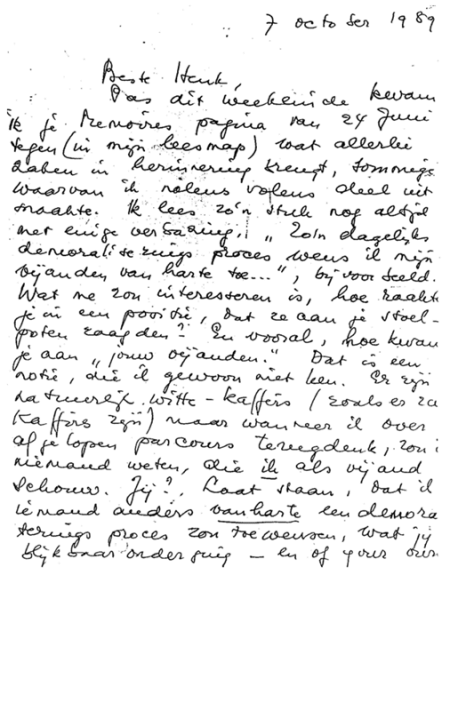 7 october 1989
Beste Henk,
Pas dit weekeinde kwam
ik je Memoires pagina van 24 Juni
tegen (in mijn leesmap) wat allerlei
zaken in herinnering brengt, sommige
waarvan ik nolens volens deel uit
maakte. Ik lees zo'n stuk nog altijd
met enige verbazing: „Zo'n dagelijks
demoraliserings proces wens ik mijn
vijanden van harte toe...", bijvoorbeeld.
Wat me zou interesseren is, hoe raakte
je in een positie, dat ze aan je stoel-
poten zaagden? En vooral, hoe kwam
je aan „jouw vijanden." Dat is een
notie, die ik gewoon niet ken. Er zijn
natuurlijk witte-kaffers (zoals er zw
kaffers zijn) maar wanneer ik over
afgelopen parcours terugdenk, zou i
niemand weten, die ik als vijand
schouw. Jij? Laat staan, dat ik
iemand anders van harte een demora
serings proces zou toewensen, wat jij
blijkbaar onderging – en of